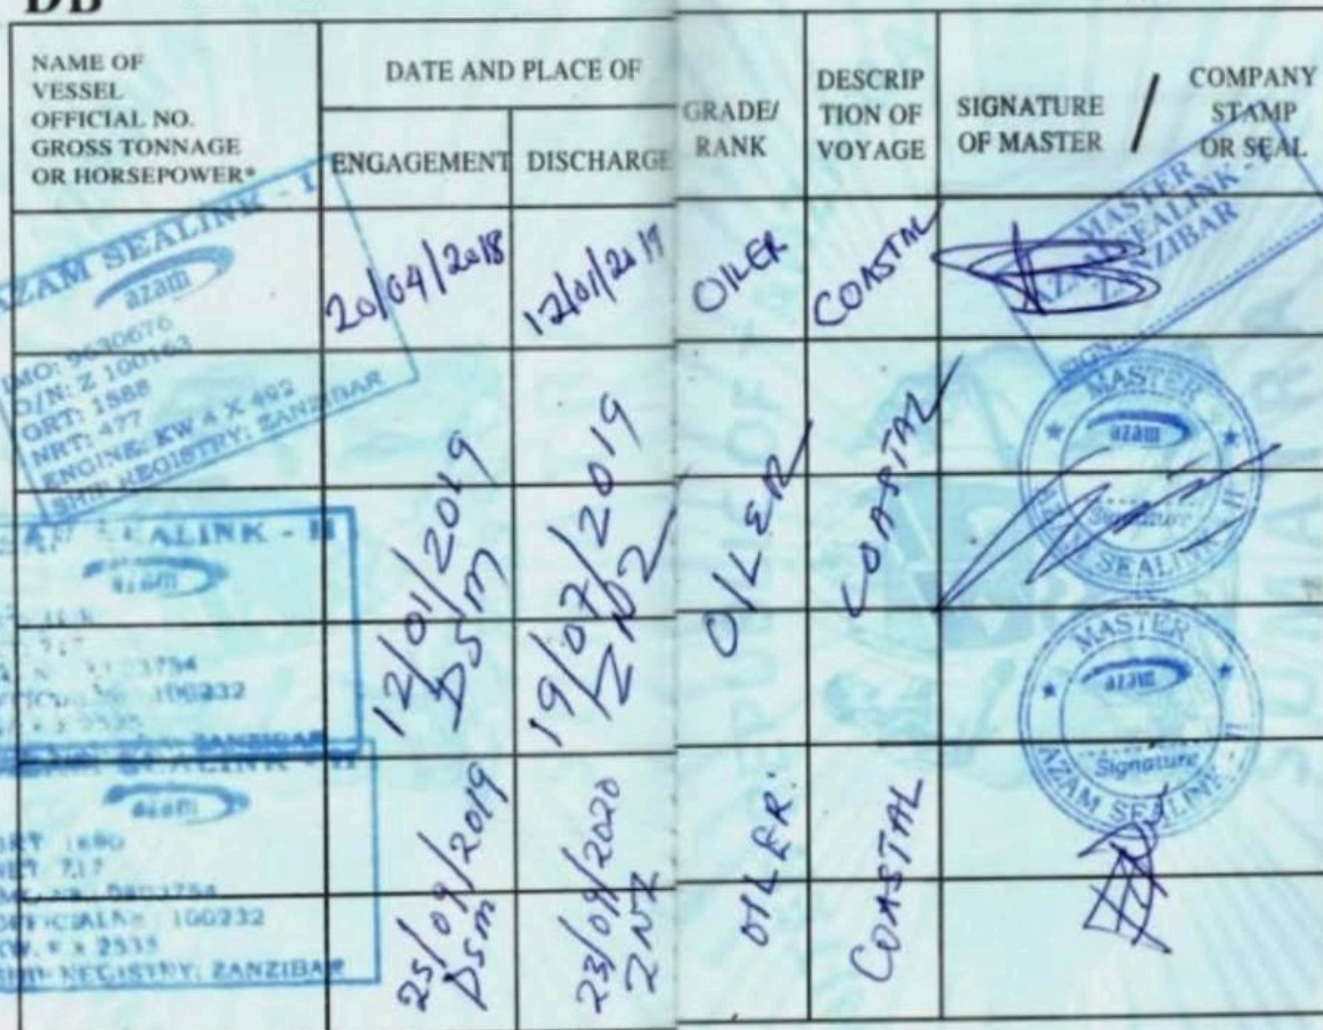 DB
NAME OF
VESSEL
OFFICIAL NO.
GROSS TONNAGE
OR HORSEPOWER*
DATE AND PLACE OF
ENGAGEMENT
DISCHARGE
GRADE/
RANK
DESCRIP
TION OF
VOYAGE
SIGNATURE
OF MASTER
/
COMPANY
STAMP
OR SEAL
AZAM SEALINK - I
azam
IMO: 9630676
O/N: Z 100163
GRT: 1588
NRT: 477
ENGINE: KW 4 X 492
SHIP REGISTRY: ZANZIBAR
20/04/2018
12/01/2019
OILER
COASTAL
MASTER
AZAM SEALINK - I
ZANZIBAR
SIGN.
SEALINK - II
azam
100232
ZANZIBAR
12/01/2019
DSM
19/07/2019
ZNZ
OILER
COASTAL
MASTER
azam
Signature
SEALINK II
SEALINK - II
azam
717
OFFICIAL 100232
KW. x 2535
SHIP REGISTRY: ZANZIBAR
25/09/2019
DSM
23/09/2020
ZNZ
OILER.
COASTAL
MASTER
azam
Signature
AZAM SEALINK - II